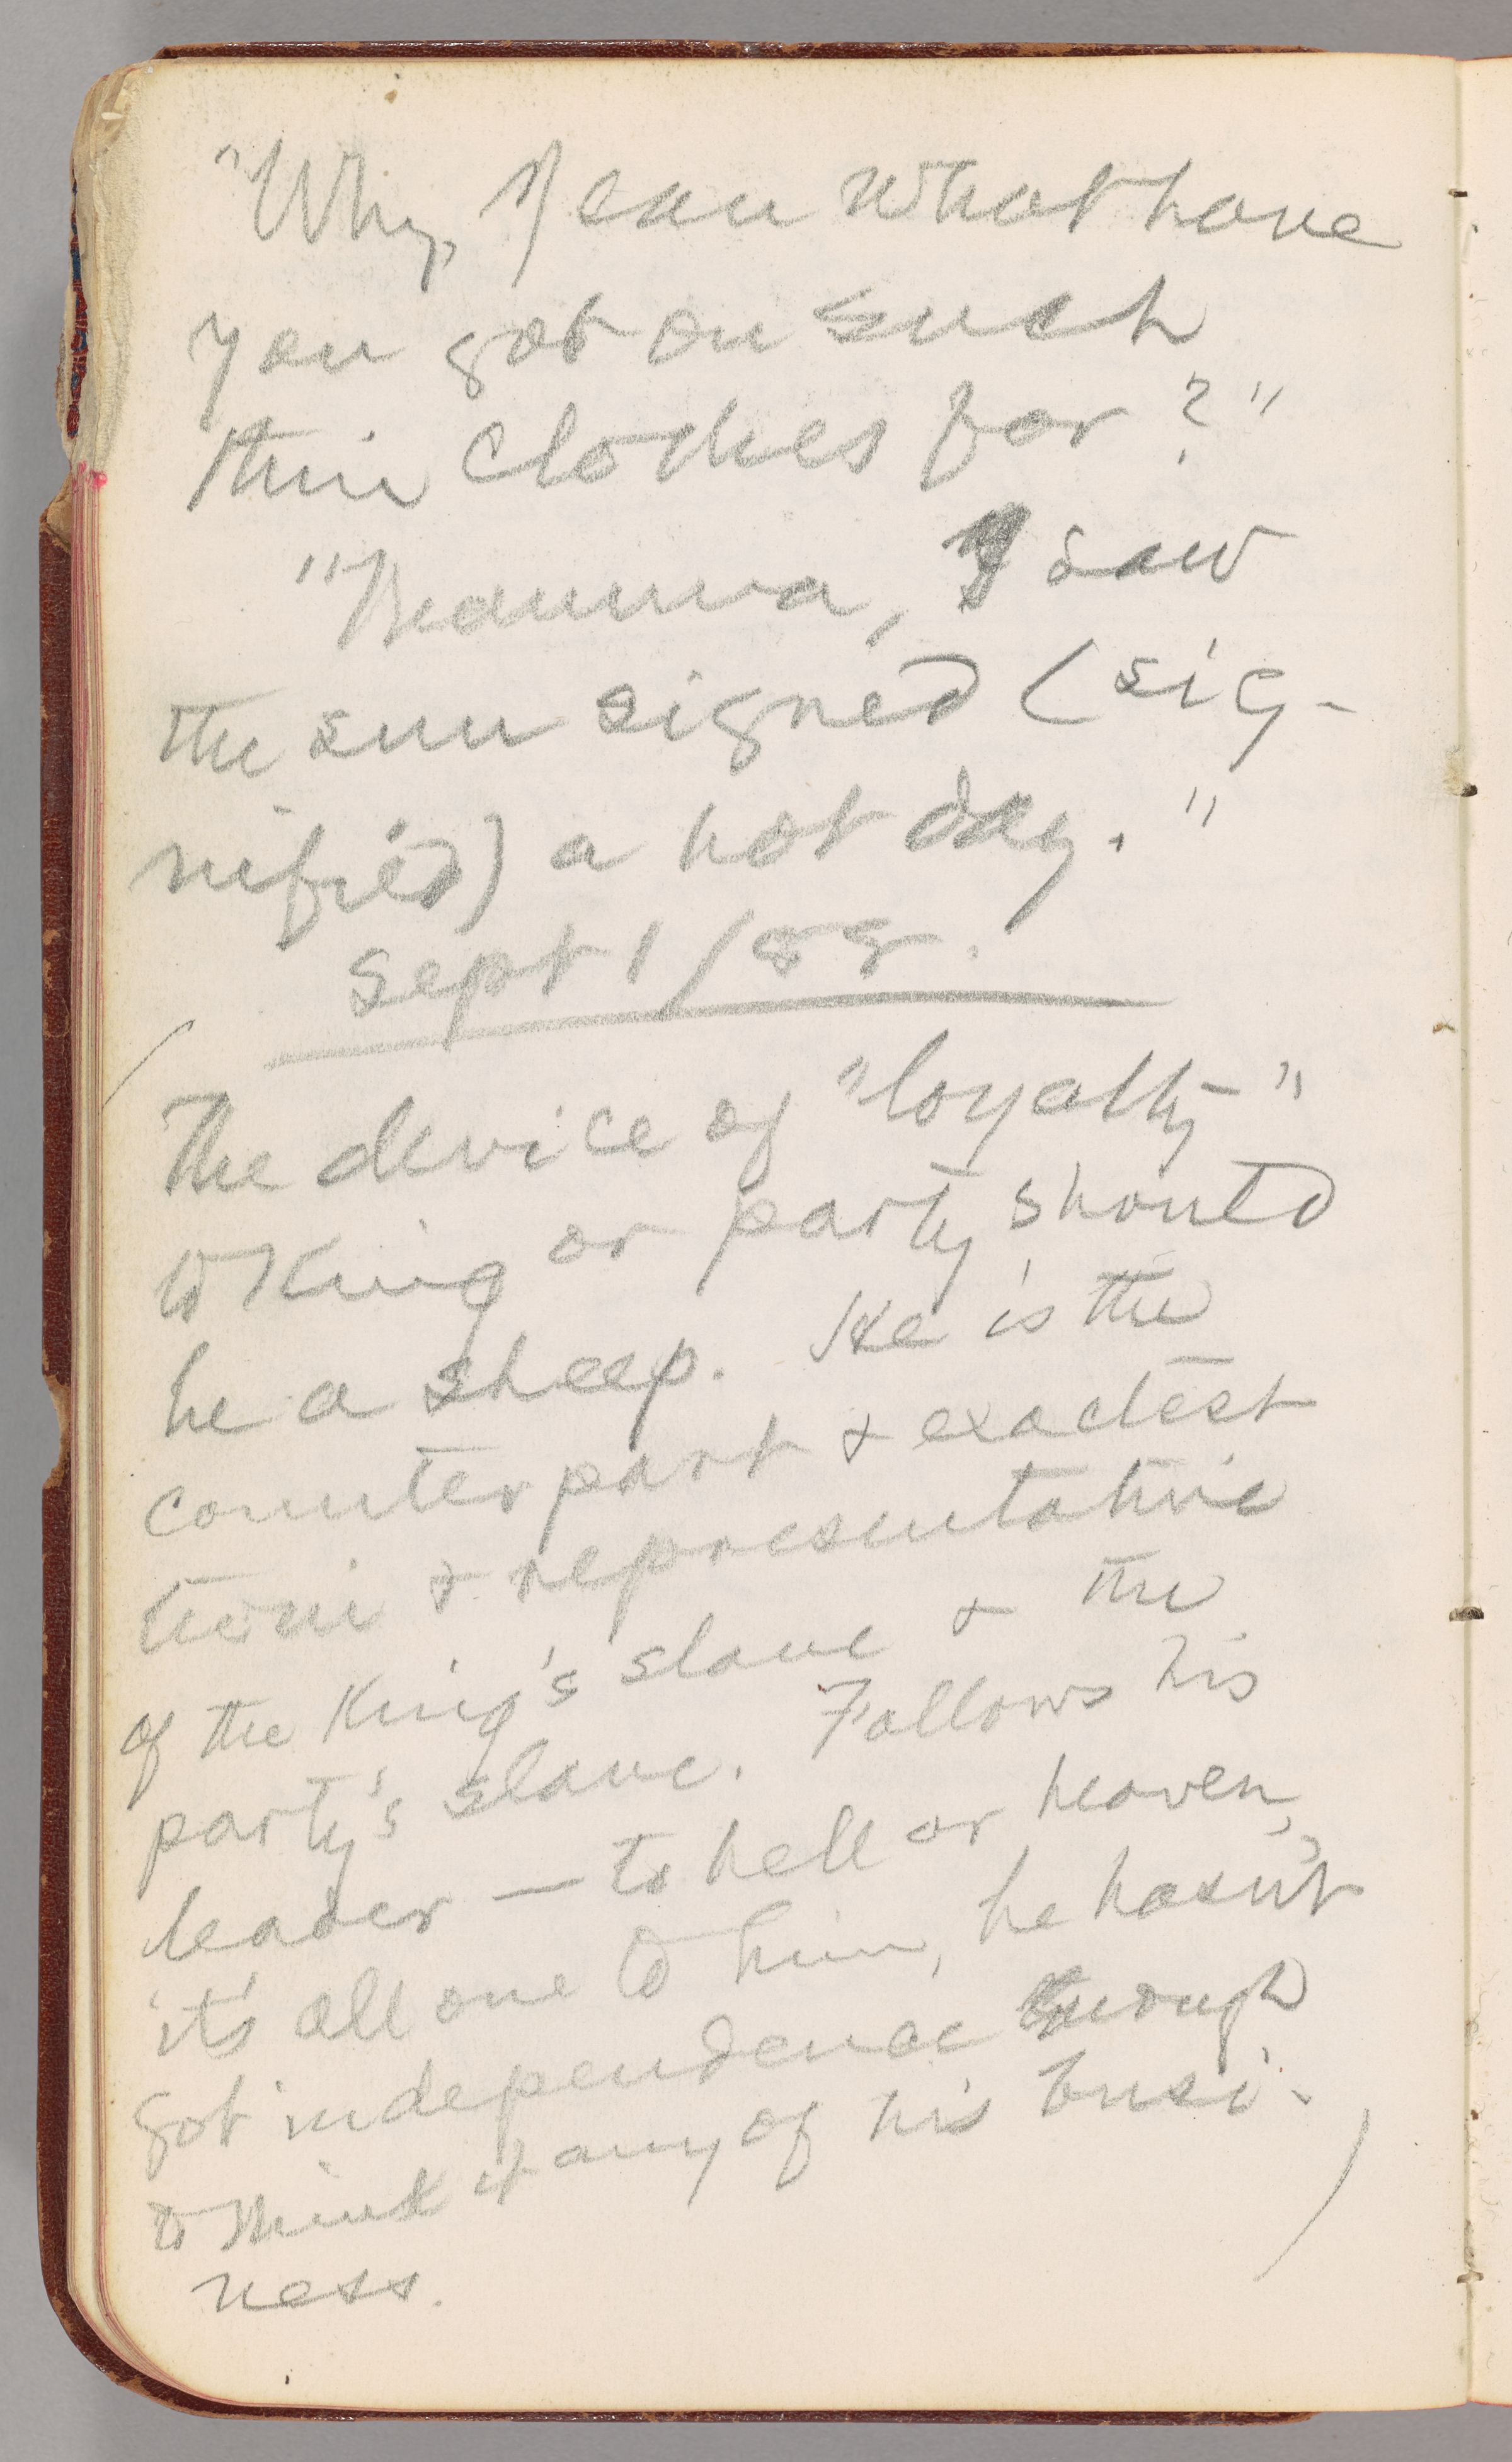 "Why, Jean what have
you got on such
thin clothes for?"
"Mamma, I saw
the sun signed (sig-
nified) a hot day."
Sept 1/88.
The device of "loyalty"
to King or party should
be a sheep. He is the
counterpart & exactest
twin & representative
of the King's slave & the
party's slave. Follows his
leader — to hell or heaven,
it's all one to him, he hasn't
got independence enough
to think it any of his busi-
ness.